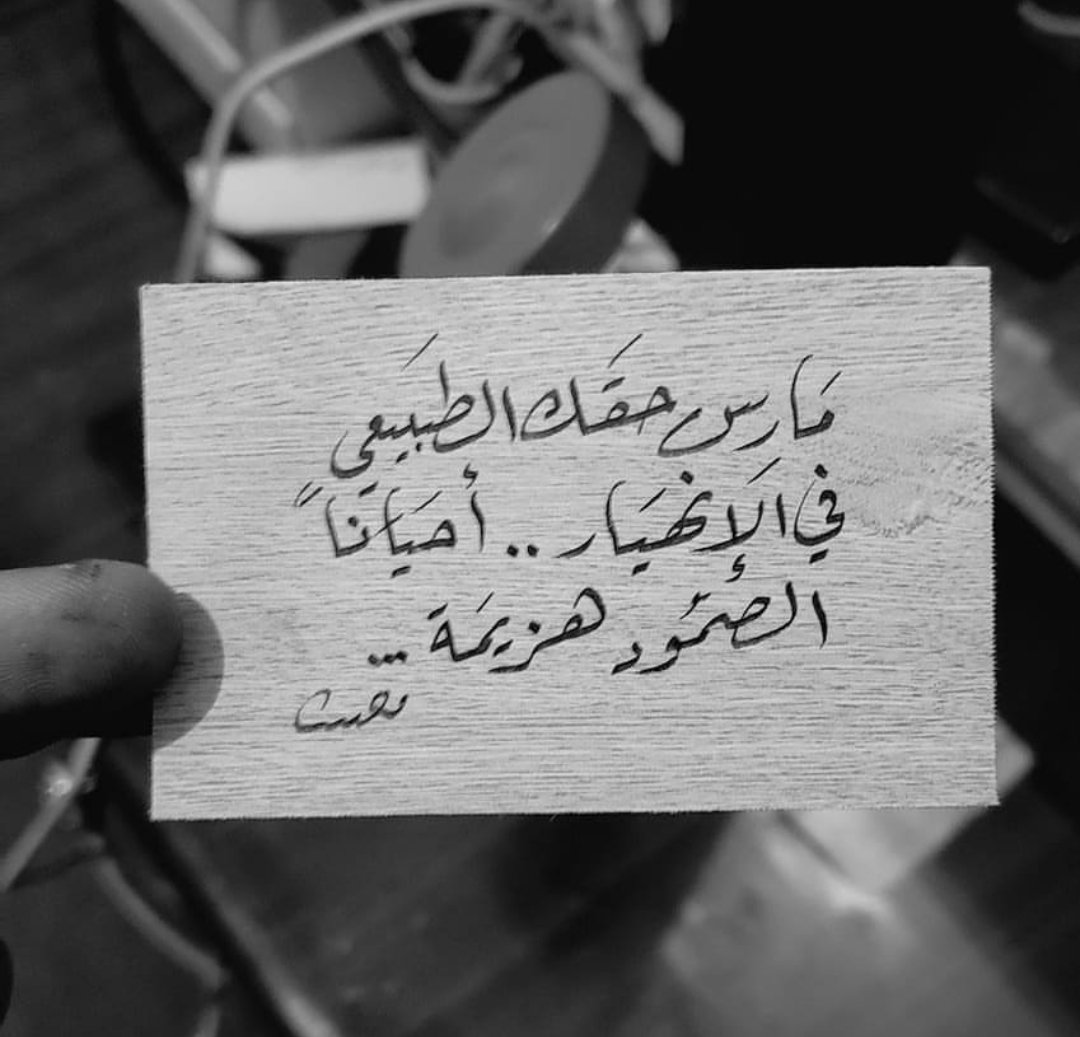 مَارس حقَك الطبَيعي
في الَانهيَار .. أحيَاناً
الصمُود هزيمَة ...